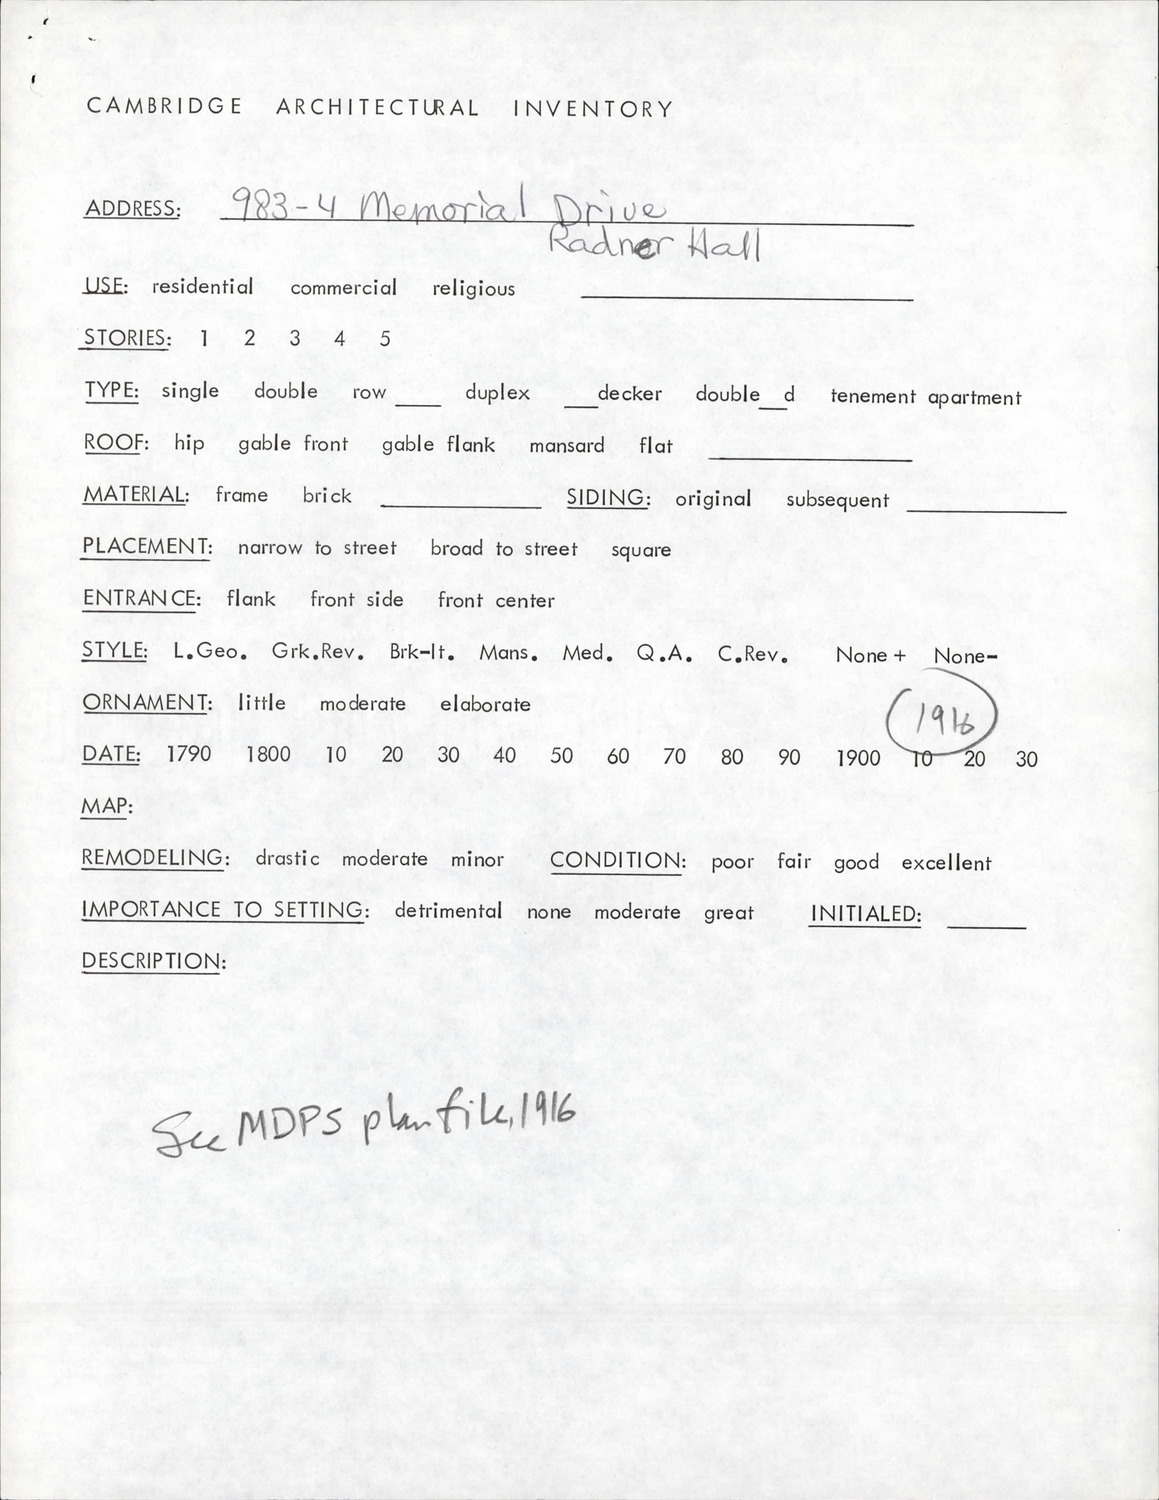 CAMBRIDGE ARCHITECTURAL INVENTORY
ADDRESS: 983-4 Memorial Drive
Radnor Hall
USE: residential commercial religious ____
STORIES: 1 2 3 4 5
TYPE: single double row ____ duplex ___decker double__d tenement apartment
ROOF: hip gable front gable flank mansard flat ____
MATERIAL: frame brick ____ SIDING: original subsequent ____
PLACEMENT: narrow to street broad to street square
ENTRANCE: flank front side front center
STYLE: L.Geo. Grk.Rev. Brk-It. Mans. Med. Q.A. C.Rev. None + None-
ORNAMENT: little moderate elaborate
1916
DATE: 1790 1800 10 20 30 40 50 60 70 80 90 1900 10 20 30
MAP:
REMODELING: drastic moderate minor CONDITION: poor fair good excellent
IMPORTANCE TO SETTING: detrimental none moderate great INITIALED: ____
DESCRIPTION:
See MDPS plan file, 1916